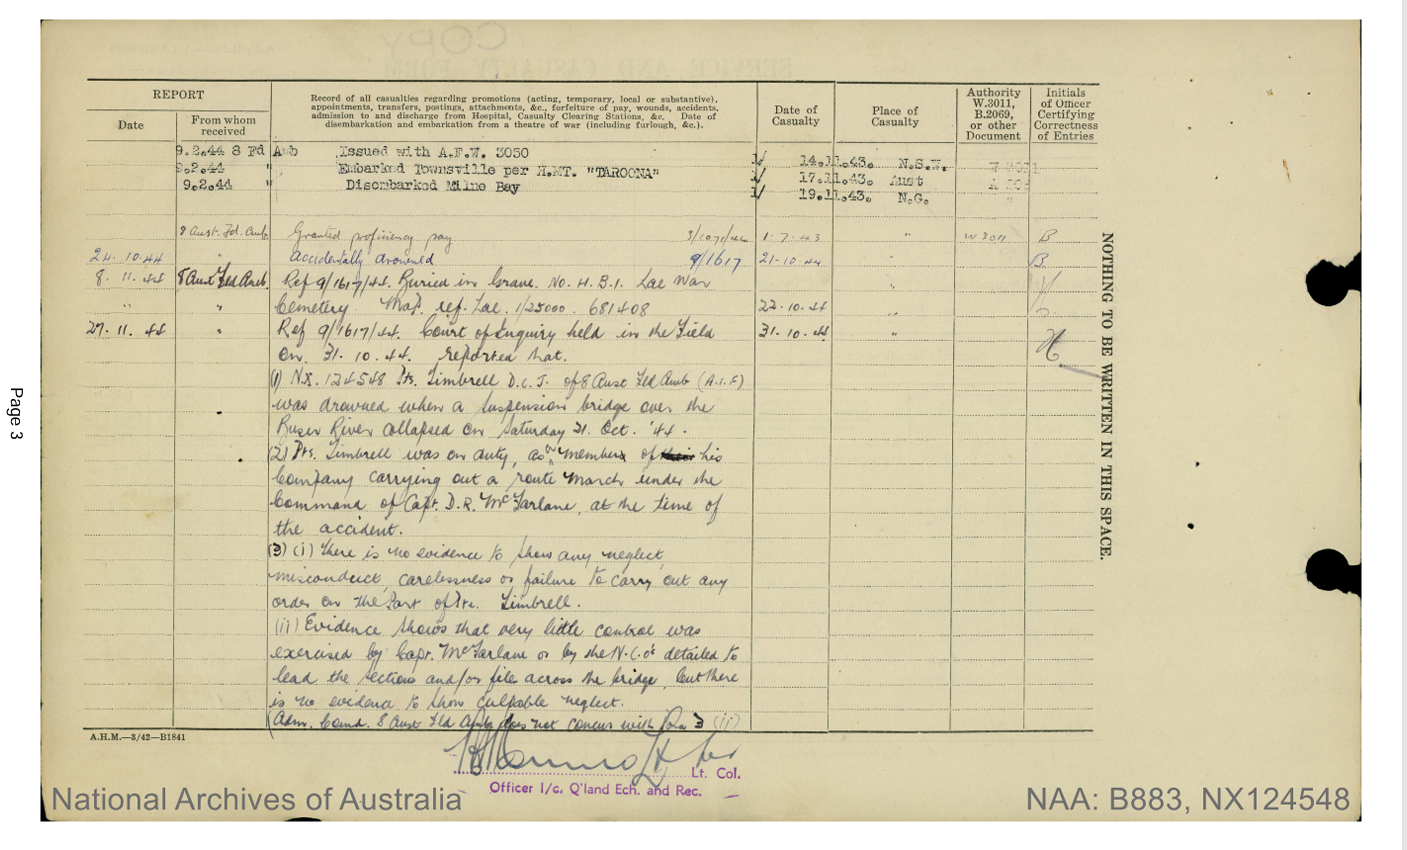 REPORT
Date
From whom received
Record of all casualties regarding promotions (acting, temporary, local or substantive),
appointments, transfers, postings, attachments, &c., forfeiture of pay, wounds, accidents,
admission to and discharge from Hospital, Casualty Clearing Stations, &c. Date of
disembarkation and embarkation from a theatre of war (including furlough, &c.).
Date of Casualty
Place of Casualty
Authority W.3011, B.2069, or other Document
Initials of Officer Certifying Correctness of Entries
9.2.44 8 Fd Amb Issued with A.F.W. 3050 14.11.43. N.S.W.
9.2.44 " Embarked Townsville per H.MT. "TAROONA" 17.11.43. Aust
9.2.44 " Disembarked Milne Bay 19.11.43. N.G.
8 Aust. Fd. Amb Granted proficiency pay 3/1071/44 1.7.43 " W3011 B
24.10.44 " Accidentally drowned 9/1617 21.10.44 B.
8.11.44 8 Aust Fld Amb. Ref 9/1617/44. Buried in Grave. No. H.B.1. Lae War "
" " " Cemetery. Map. ref. Lae. 1/25000. 681408 22.10.44 "
27.11.44 " Ref 9/1617/44. Court of Enquiry held in the Field 31.10.44 "
on. 31.10.44. reported that.
(1) NX. 124548 Pte. Timbrell D.C.J. of 8 Aust Fld Amb (A.I.F)
was drowned when a suspension bridge over the
River collapsed on Saturday 21. Oct. '44.
(2) Pte. Timbrell was on duty, as a member of his
Company carrying out a route march under the
Command of Capt. D.R. McFarlane, at the time of
the accident.
(3) (i) There is no evidence to show any neglect,
misconduct, carelessness or failure to carry out any
order on the part of Pte. Timbrell.
(ii) Evidence shows that very little control was
exercised by Capt. McFarlane or by the N.C.Os detailed to
lead the sections and/or file across the bridge, but there
is no evidence to show culpable neglect.
(Adm. Comd. 8 Aust Fld Amb does not concur with Para 3 (ii)
A.H.M.—3/42—B1841
Lt. Col.
Officer I/c. Q'land Ech. and Rec.
NOTHING TO BE WRITTEN IN THIS SPACE.
Page 3
National Archives of Australia
NAA: B883, NX124548